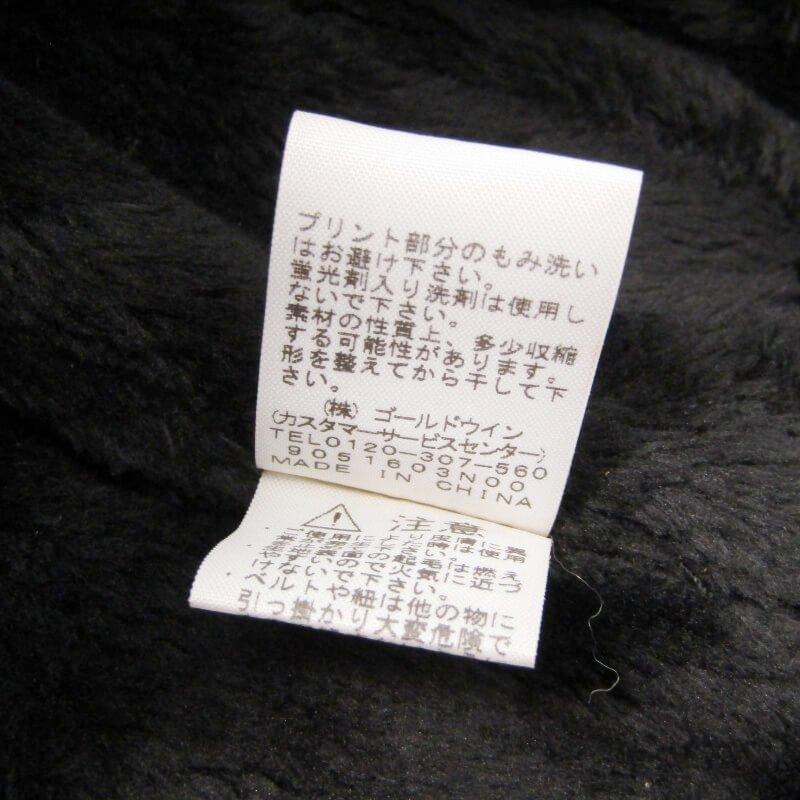 プリント部分のもみ洗い
はお避け下さい。
蛍光剤入り洗剤は使用し
ないで下さい。
素材の性質上、多少収縮
する可能性があります。
形を整えてから干して下
さい。
(株) ゴールドウイン
(カスタマーサービスセンター)
TEL0120-307-560
9051603N00
MADE IN CHINA
注意
ベルトや紐は他の物に
引っ掛かり大変危険で